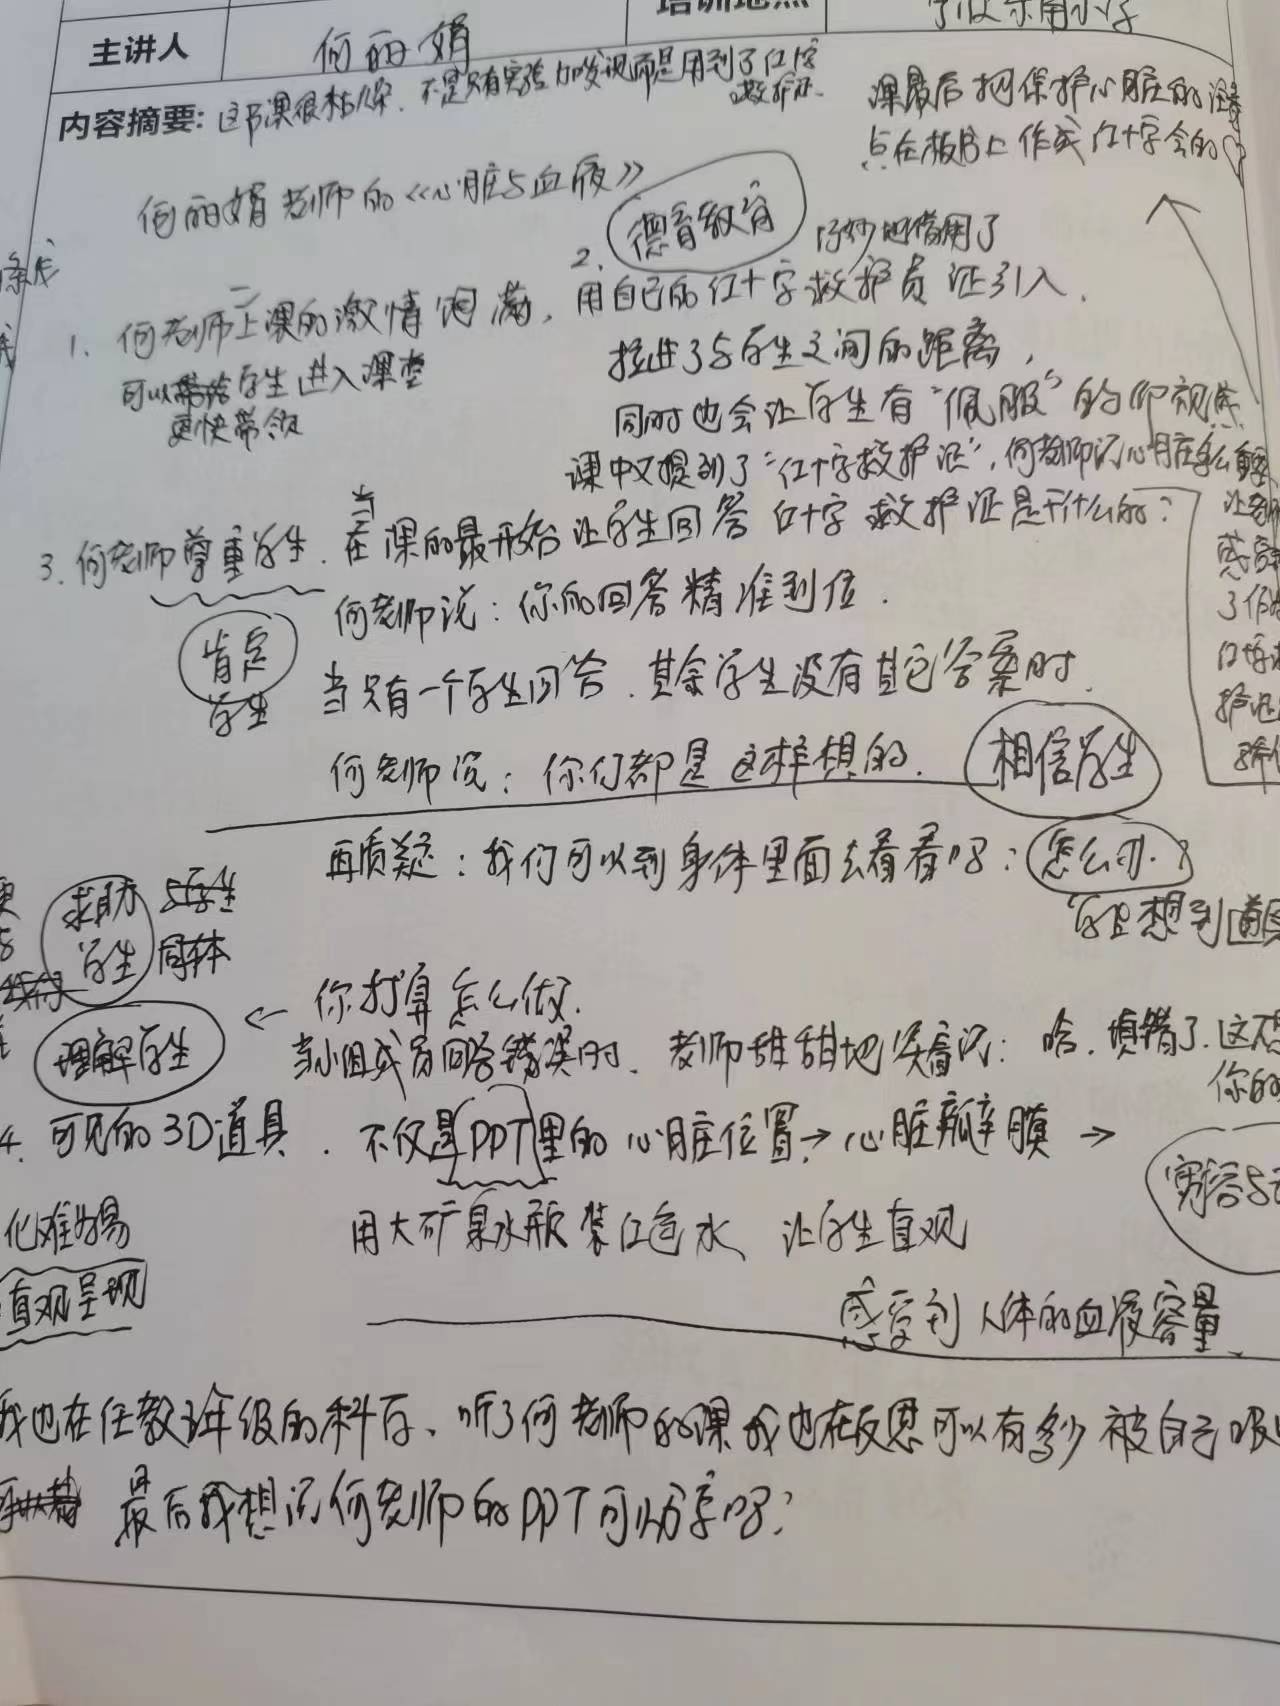 培训地点
主讲人 何丽娟
内容摘要: 这节课很枯燥. 不是只有实验 而是用到了红十字
救护证.
课最后把保护心脏的注意
点在板书上作成红十字会的♡
何丽娟老师的《心脏与血液》
2. 德育教育 巧妙地借用了
用自己的红十字救护员证引入.
拉进了与学生之间的距离,
同时也会让学生有“佩服”的仰视感
课中又提到了“红十字救护证”, 何老师说心脏怎么
1. 何老师上课的激情饱满,
可以 学生进入课堂
更快带领
3. 何老师尊重学生. 当在课的最开始让学生回答红十字救护证是干什么的?
何老师说: 你的回答精准到位.
肯定
学生
当只有一个学生回答. 其余学生没有其它答案时.
何老师说: 你们都是这样想的. 相信学生
再质疑: 我们可以到身体里面去看看吗? 怎么办.?
学生想到道具
求助
学生 与学生
同体
你打算怎么做.
理解学生
当小组成员回答错误时. 老师甜甜地笑着说: 哈. 填错了. 这不
你的
4. 可见的3D道具. 不仅是PPT里的心脏位置→心脏瓣膜→
化难为易
直观呈现
用大矿泉水瓶装红色水、让学生直观
感受到人体的血液容量.
我也在任教 年级的科学、听了何老师的课我也在反思可以有多少被自己吸
最后我想问何老师的PPT可以分享吗?